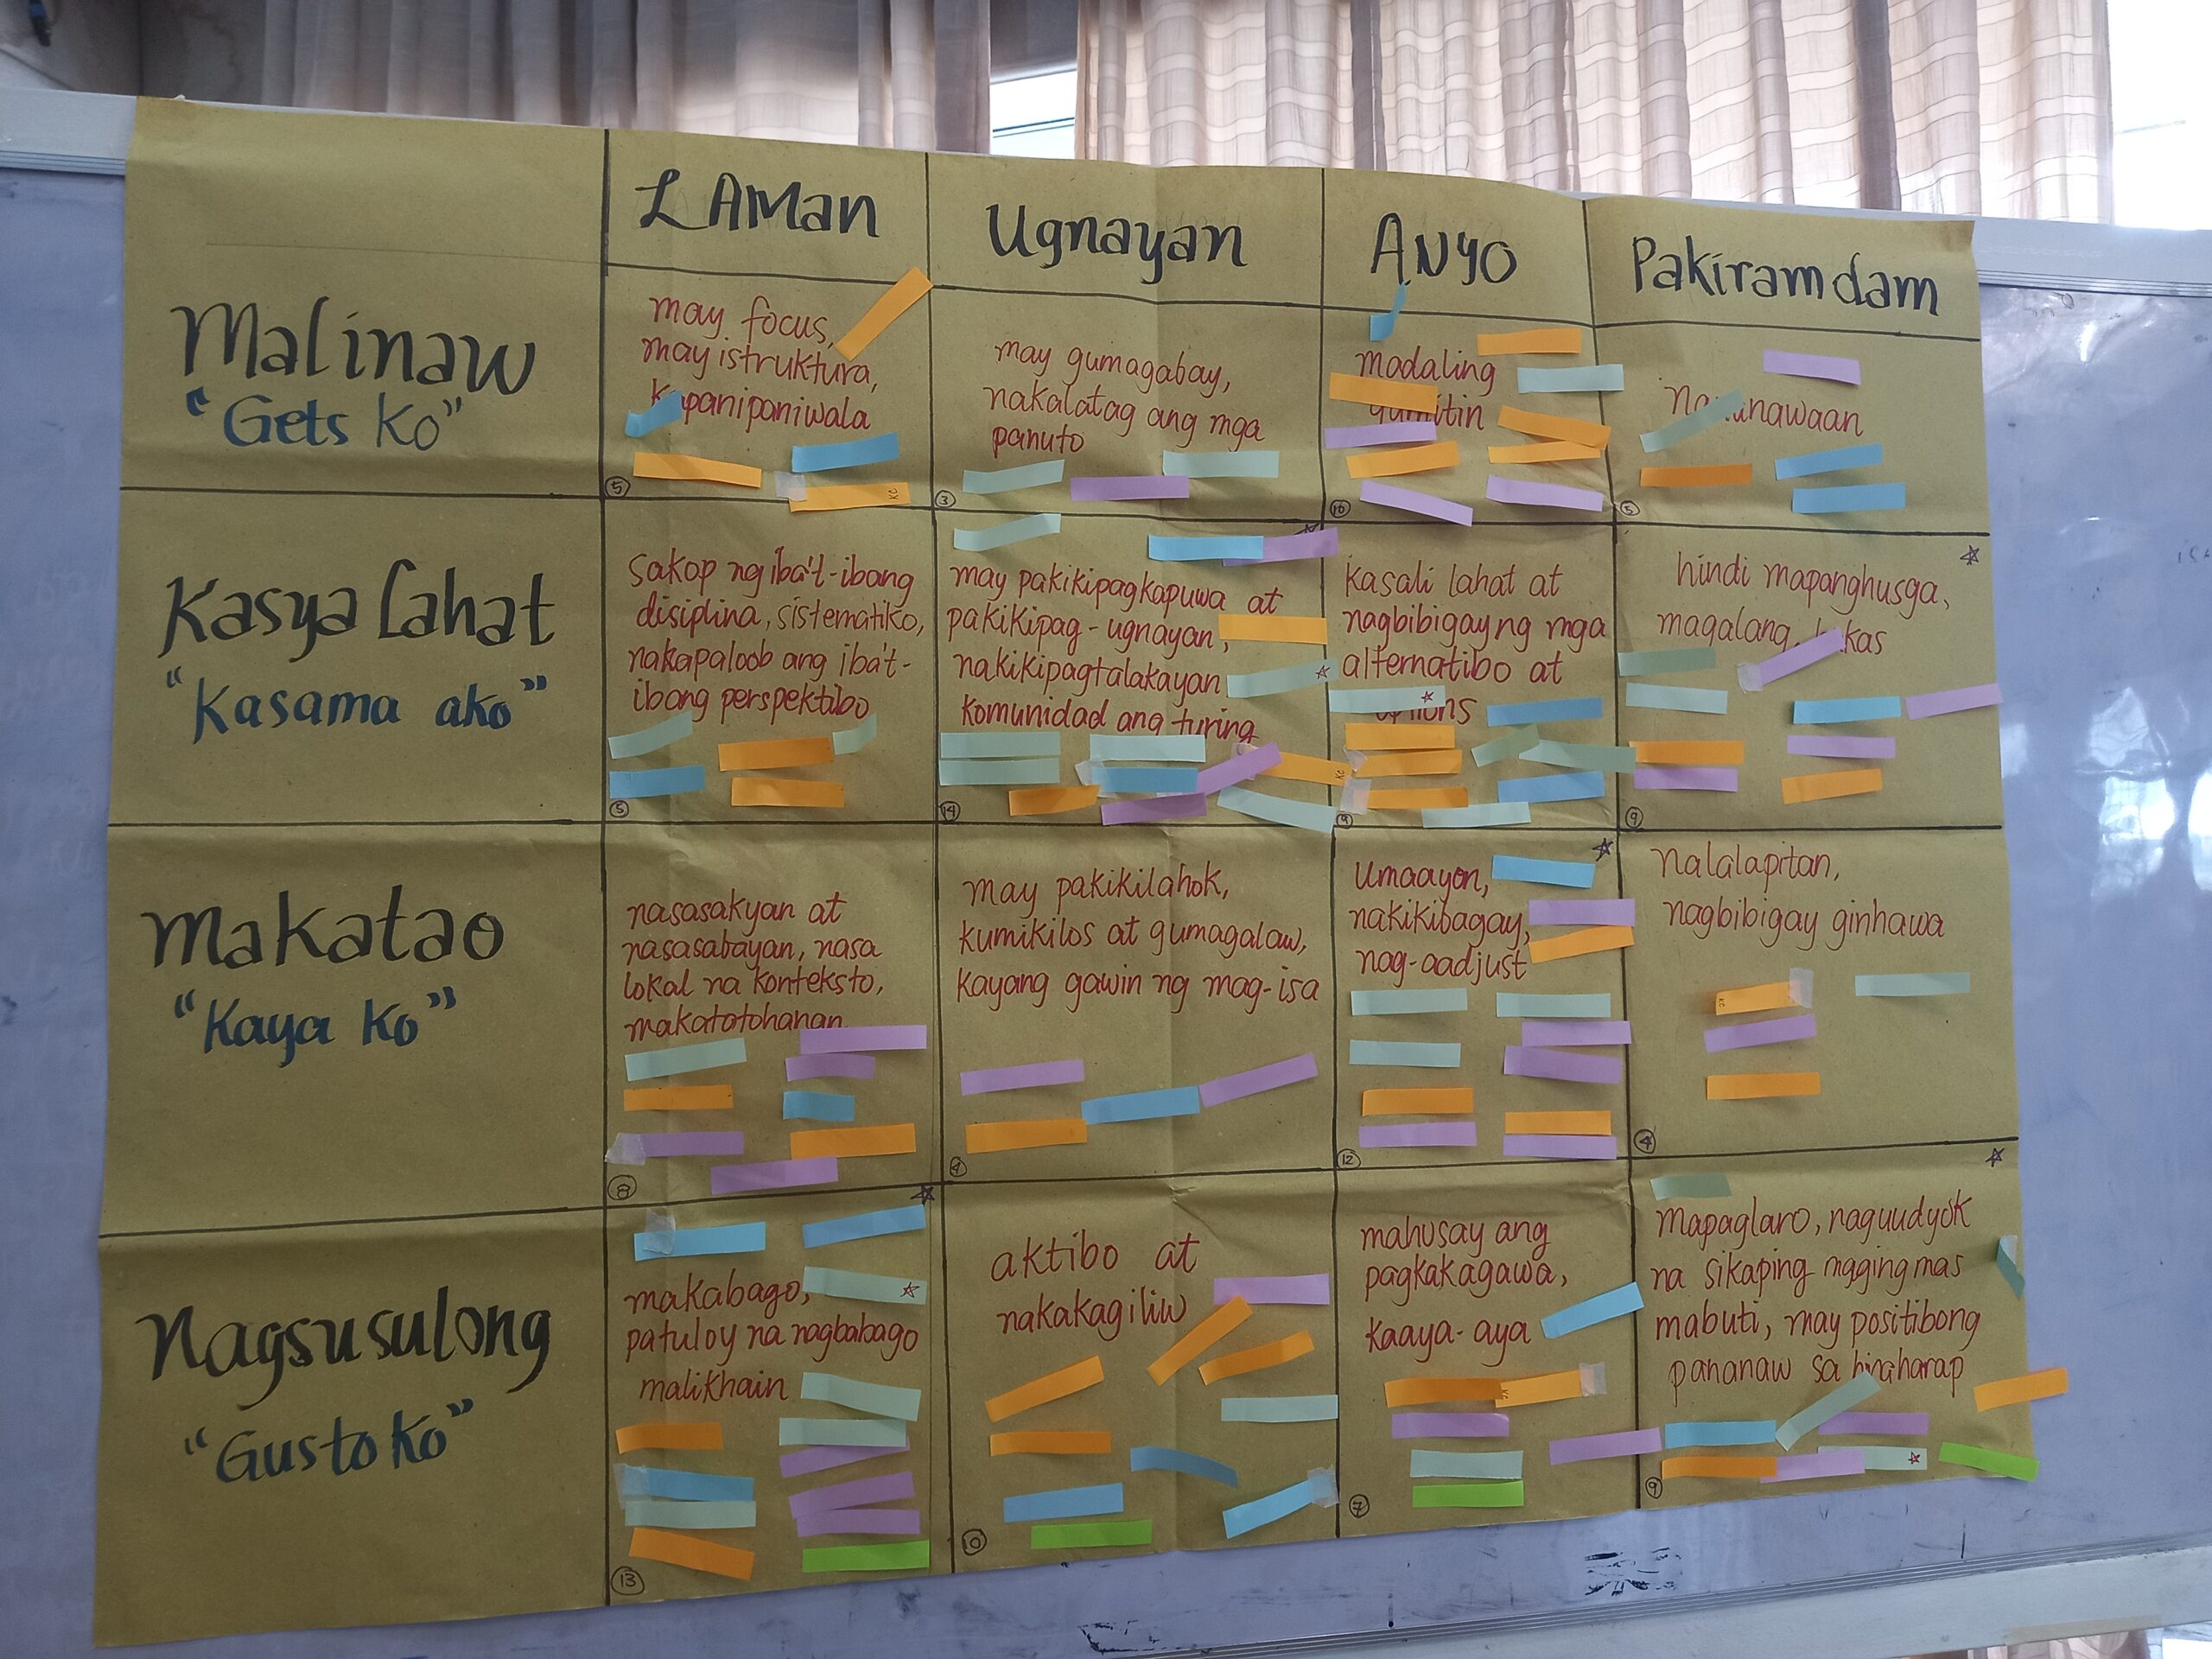 LAMan
Ugnayan
ANYO
Pakiramdam
Malinaw
"Gets Ko"
may focus,
may istruktura,
kapanipaniwala
KC
5
may gumagabay,
nakalatag ang mga
panuto
3
madaling
gumitin
10
5
Kasya lahat
"Kasama ako"
Sakop ng iba't-ibang
disiplina, sistematiko,
nakapaloob ang iba't-
ibang perspektibo
5
may pakikipagkapuwa at
pakikipag-ugnayan,
nakikipagtalakayan
komunidad ang turing
KC
14
kasali lahat at
nagbibigay ng mga
alternatibo at
options
9
hindi mapanghusga,
magalang,
9
Makatao
"Kaya Ko"
nasasakyan at
nasasabayan, nasa
lokal na konteksto,
makatotohanan
8
may pakikilahok,
kumikilos at gumagalaw,
kayang gawin ng mag-isa
4
Umaayon,
nakikibagay,
nag-aadjust
12
Nalalapitan,
nagbibigay ginhawa
KC
4
Nagsusulong
"Gusto Ko"
makabago,
patuloy na nagbabago
malikhain
13
aktibo at
nakakagiliw
10
mahusay ang
pagkakagawa,
kaaya-aya
KC
7
Mapaglaro, naguudyok
na sikaping maging mas
mabuti, may positibong
pananaw sa hinaharap
9